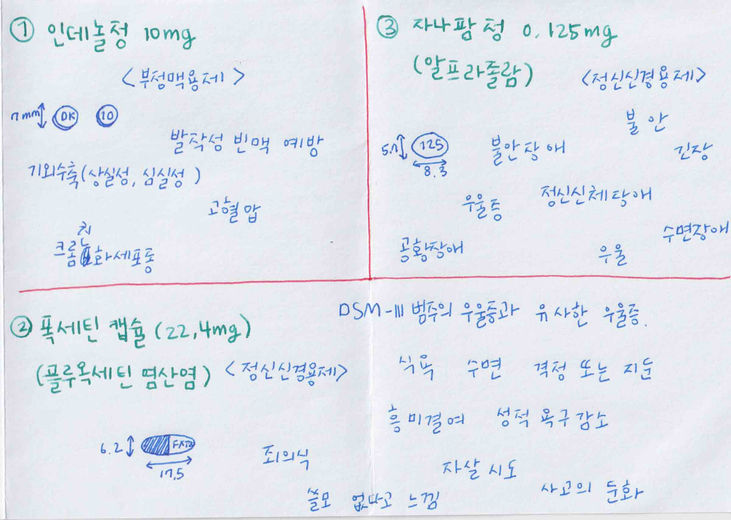 ① 인데놀정 10mg
<부정맥용제>
7mm DK 10
발작성 빈맥 예방
기외수축(상실성, 심실성)
고혈압
크롬친화세포종
③ 자나팜정 0.125mg
(알프라졸람)
<정신신경용제>
불안
125 8.3
불안장애
긴장
우울증
정신신체장애
수면장애
공황장애
우울
② 폭세틴 캡슐 (22,4mg)
(플루옥세틴 염산염) <정신신경용제>
6.2 17.5
죄의식
DSM-III 범주의 우울증과 유사한 우울증.
식욕 수면 격정 또는 지둔
흥미결여 성적 욕구감소
자살 시도
쓸모 없다고 느낌
사고의 둔화